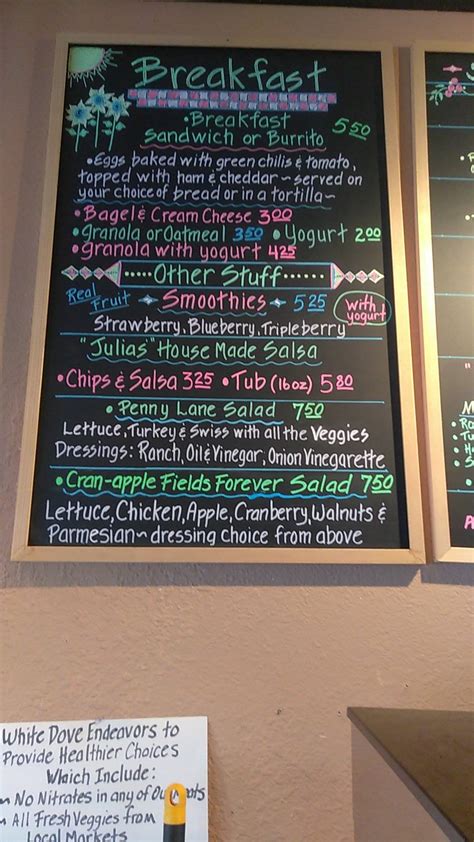 Breakfast
•Breakfast
Sandwich or Burrito 5.50
•Eggs baked with green chilis & tomato,
topped with ham & cheddar ~ served on
your choice of bread or in a tortilla~
•Bagel & Cream Cheese 3.00
•Granola or Oatmeal 3.50 •Yogurt 2.00
•granola with yogurt 4.25
.....Other Stuff.....
Real Fruit Smoothies 5.25 with yogurt
Strawberry, Blueberry, Tripleberry
"Julias" House Made Salsa
•Chips & Salsa 3.25 •Tub (16oz) 5.80
•Penny Lane Salad 7.50
Lettuce, Turkey & Swiss with all the Veggies
Dressings: Ranch, Oil & Vinegar, Onion Vinegarette
•Cran-apple Fields Forever Salad 7.50
Lettuce, Chicken, Apple, Cranberry, Walnuts &
Parmesian~dressing choice from above
White Dove Endeavors to
Provide Healthier Choices
Which Include:
~ No Nitrates in any of
~ All Fresh Veggies from
Local Markets